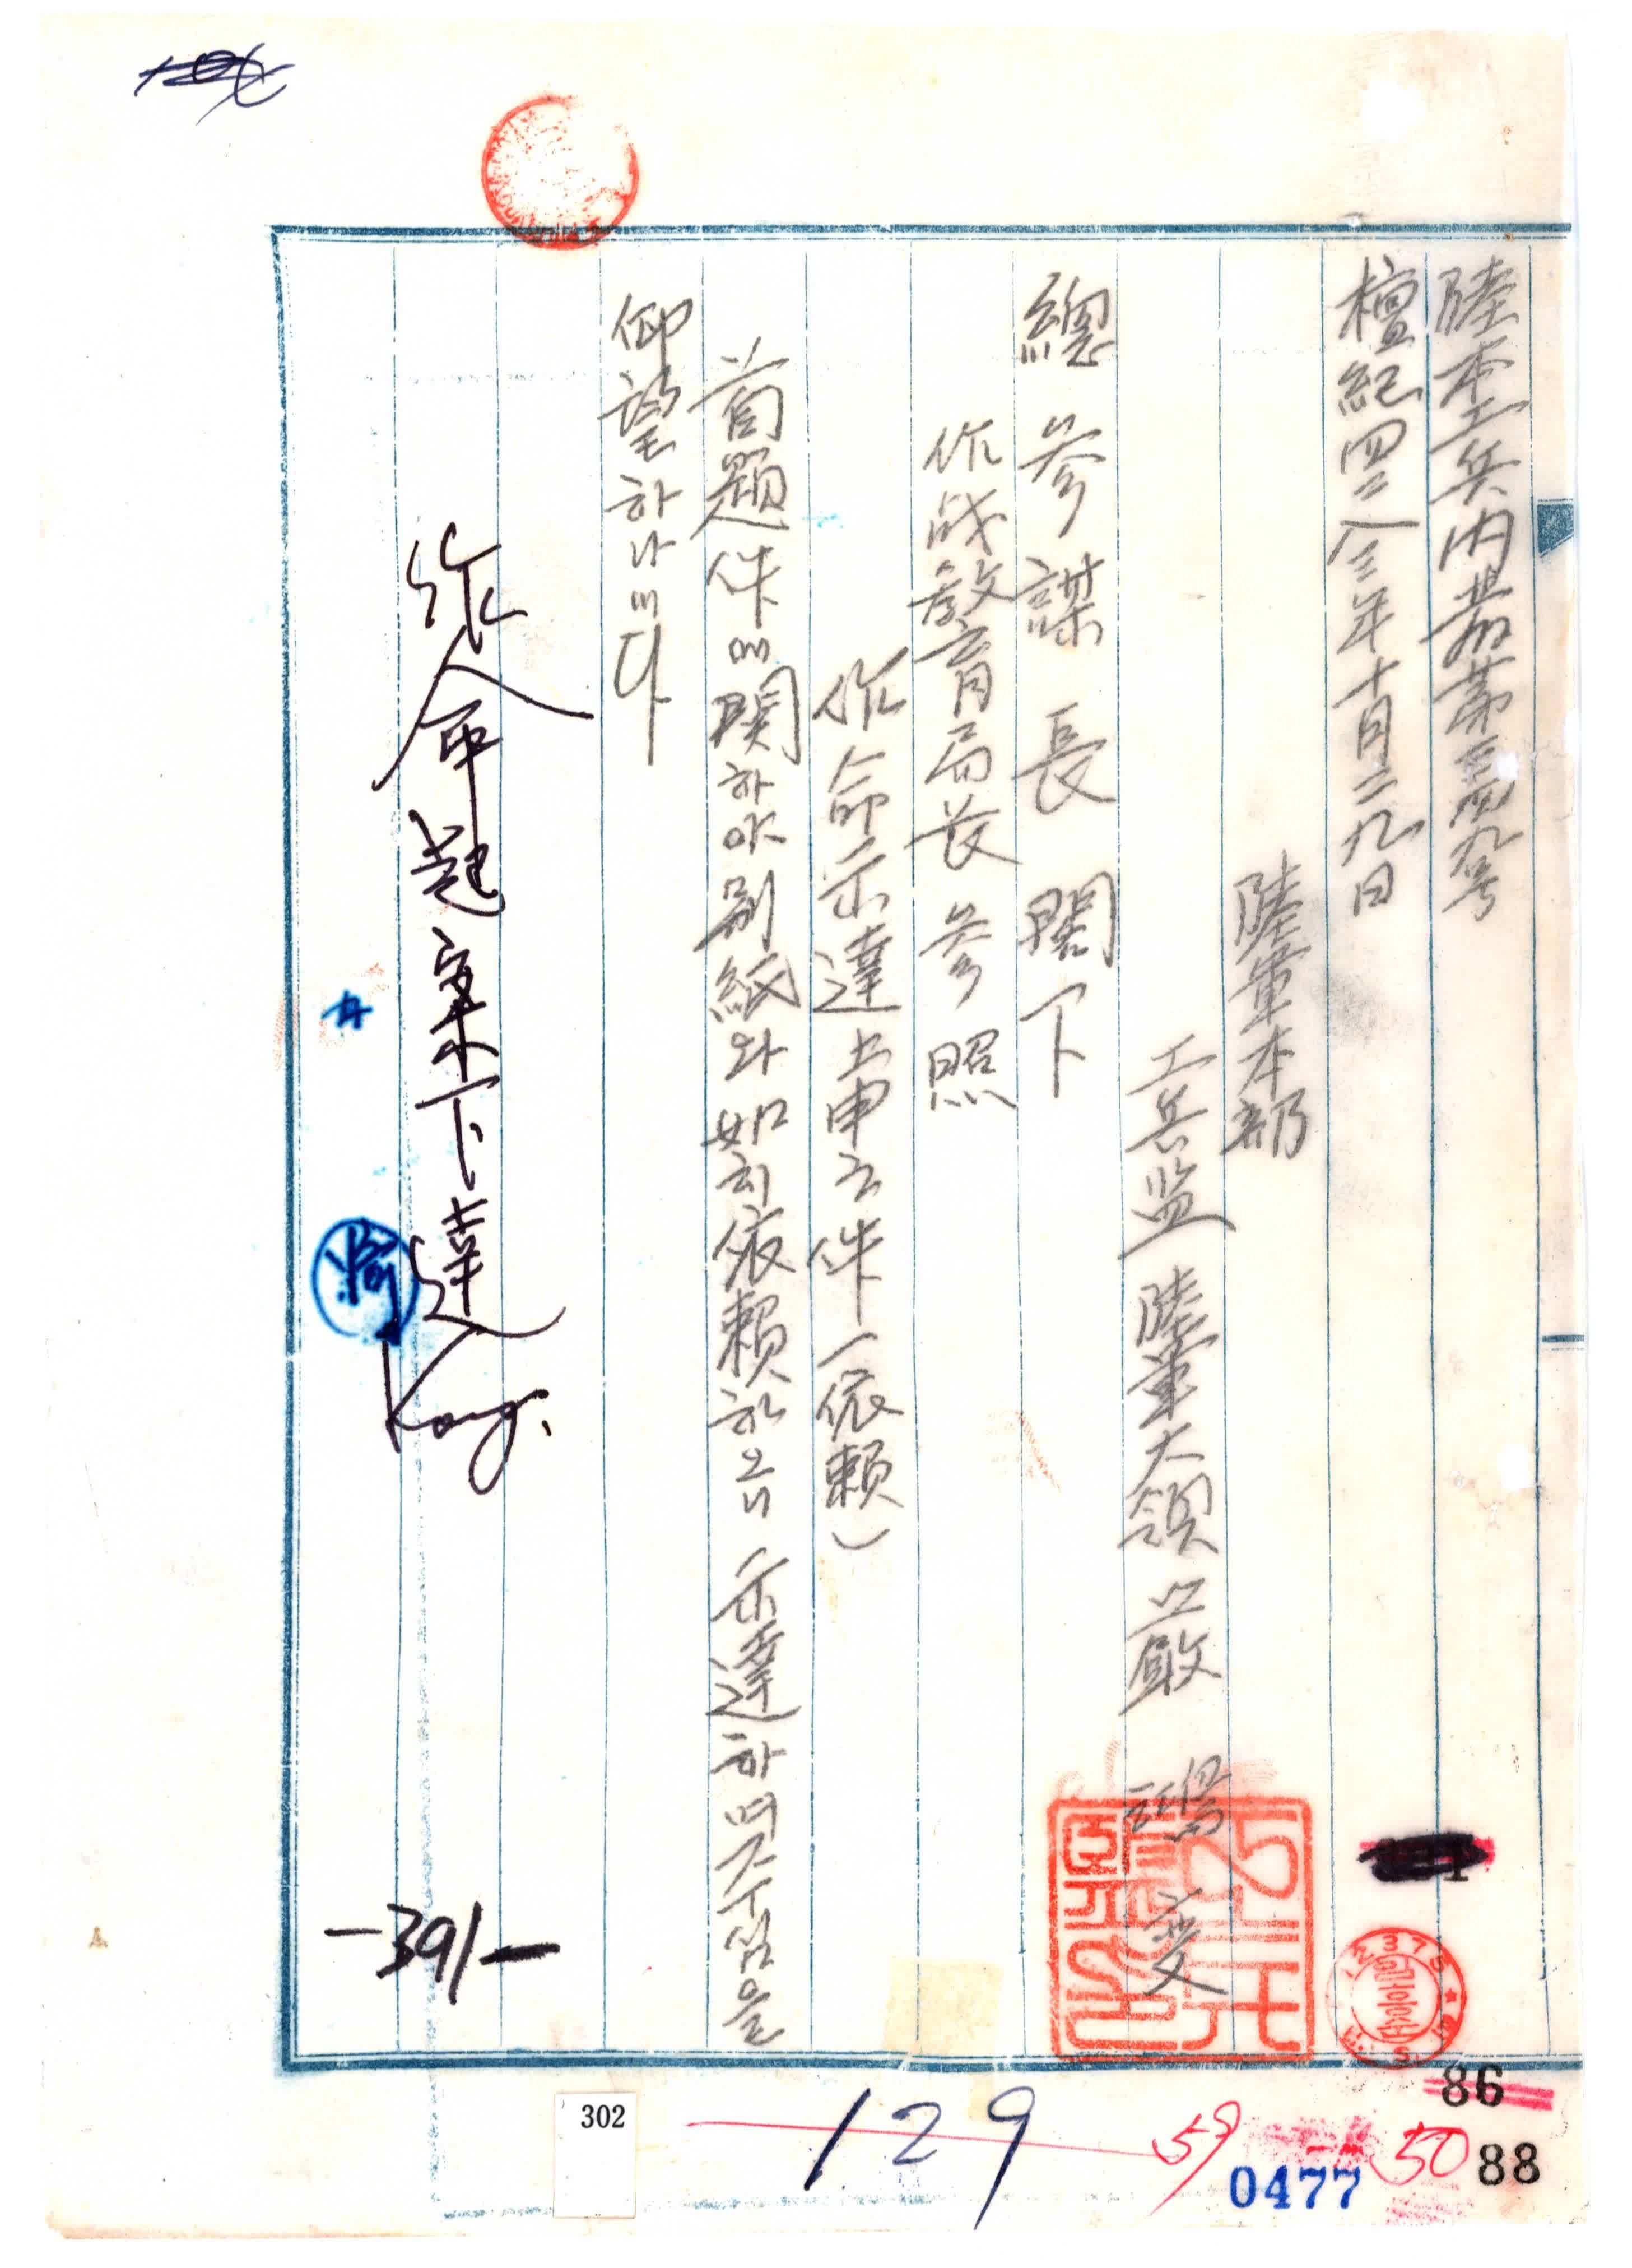 陸本工兵內發第三四九号
檀紀四二八三年十月二九日
陸軍本部
工兵監 陸軍大領 嚴 鴻燮
總參謀長閣下
作战敎育局长参照
作命示達上申之件(依賴)
首題件에關하야別紙와如히依賴하오니 示達하며주심을
仰望하나이다
作命起案下達
Kang.
-391-
302
129
59
50
86
88
0477